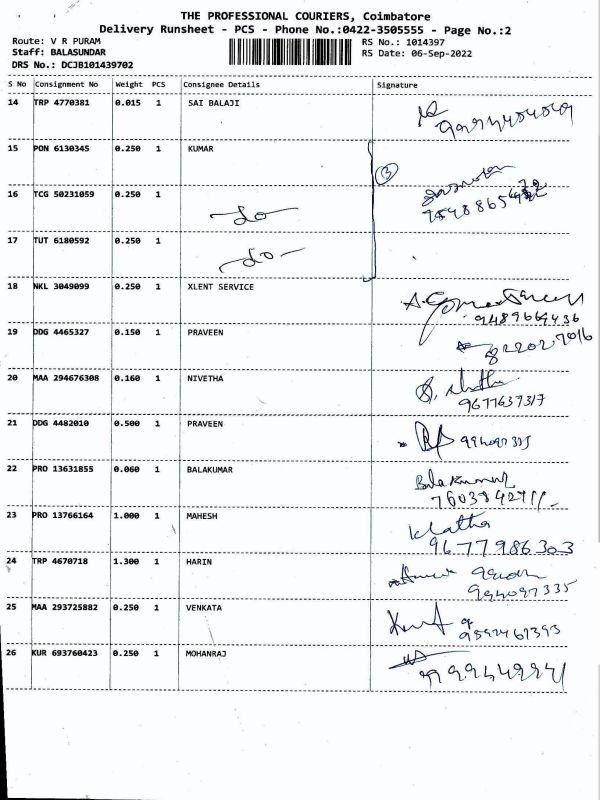 THE PROFESSIONAL COURIERS, Coimbatore
Delivery Runsheet - PCS - Phone No.:0422-3505555 - Page No.:2
Route: V R PURAM RS No.: 1014397
Staff: BALASUNDAR RS Date: 06-Sep-2022
DRS No.: DCJB101439702
S No Consignment No Weight PCS Consignee Details Signature
14 TRP 4770381 0.015 1 SAI BALAJI
15 PON 6130345 0.250 1 KUMAR
3
16 TCG 50231059 0.250 1
17 TUT 6180592 0.250 1
18 NKL 3049099 0.250 1 XLENT SERVICE
9489669436
19 DDG 4465327 0.150 1 PRAVEEN
8220277016
20 MAA 294676308 0.160 1 NIVETHA
9677637317
21 DDG 4482010 0.500 1 PRAVEEN
22 PRO 13631855 0.060 1 BALAKUMAR
Balakumar
23 PRO 13766164 1.000 1 MAHESH
Klatha
9677986303
24 TRP 4670718 1.300 1 HARIN
994097335
25 MAA 293725882 0.250 1 VENKATA
26 KUR 693760423 0.250 1 MOHANRAJ